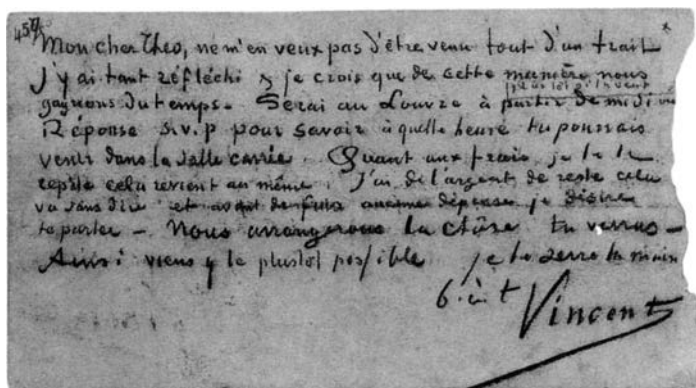 459
Mon cher Theo, ne m'en veux pas d'être venu tout d'un trait
J'y ai tant réfléchi & je crois que de cette manière nous
gagnons du temps. Serai au Louvre à partir de midi ou
plus tôt si tu veux
Réponse s.v.p pour savoir à quelle heure tu pourrais
venir dans la Salle carrée. Quant aux frais je te le
repète cela revient au même. J'ai de l'argent de reste cela
va sans dire et avant de faire aucune dépense je désire
te parler – Nous arrangerons la chôse tu verras –
Ainsi viens y le plustôt possible je te serre la main
b. à t
Vincent